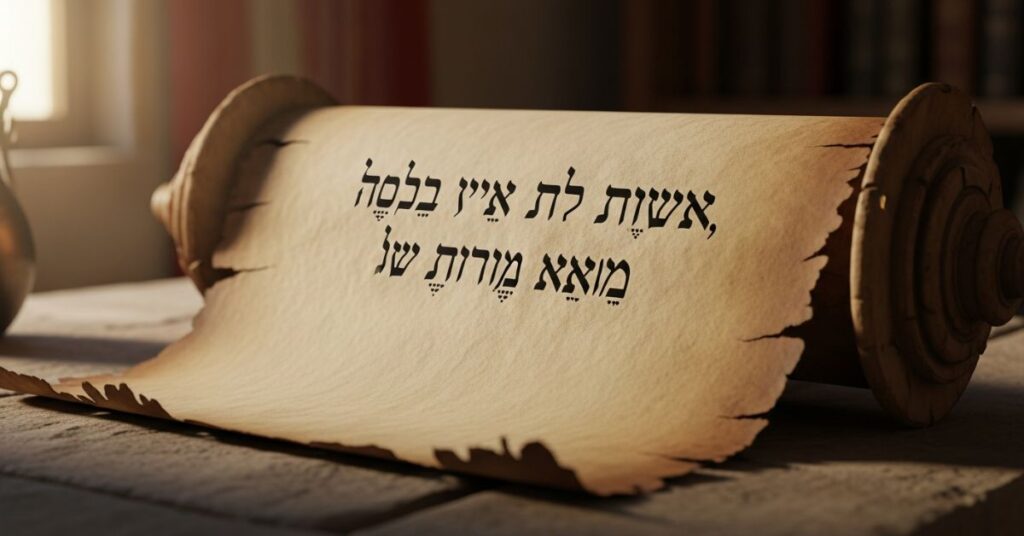 אשוֶת לת אֵיין בַלסֶה,
מֲואֵא מֶורותֶ שנ